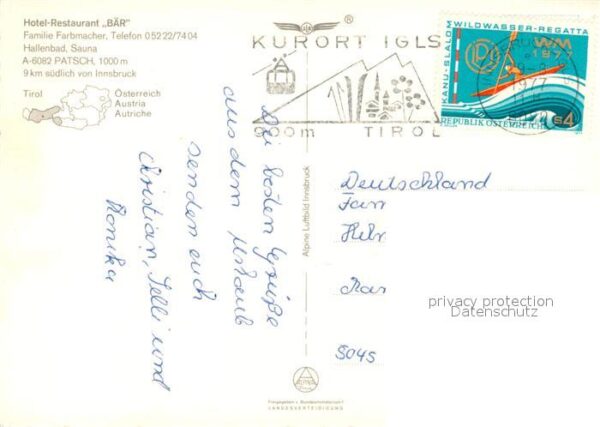 Hotel-Restaurant „BÄR"
Familie Farbmacher, Telefon 0 52 22/74 04
Hallenbad, Sauna
A-6082 PATSCH, 1000 m
9 km südlich von Innsbruck
Tirol
Österreich
Austria
Autriche
KURORT IGLS
900m TIROL
KANU-SLALOM
WILDWASSER-REGATTA
WM
1977
1977
REPUBLIK ÖSTERREICH
S4
Die besten Grüße
aus dem Urlaub
senden euch
Christian, Selli und
Monika
Alpine Luftbild Innsbruck
Deutschland
Fam
5045
privacy protection
Datenschutz
ALPINE
Freigegeben v. Bundesministerium f.
LANDESVERTEIDIGUNG